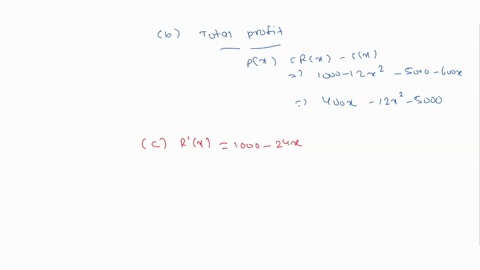 (b) Total profit
P(x) = R(x) - C(x)
=> 1000-12x² - 5000-600x
=> 400x - 12x²-5000
(C) R'(x) = 1000-24x